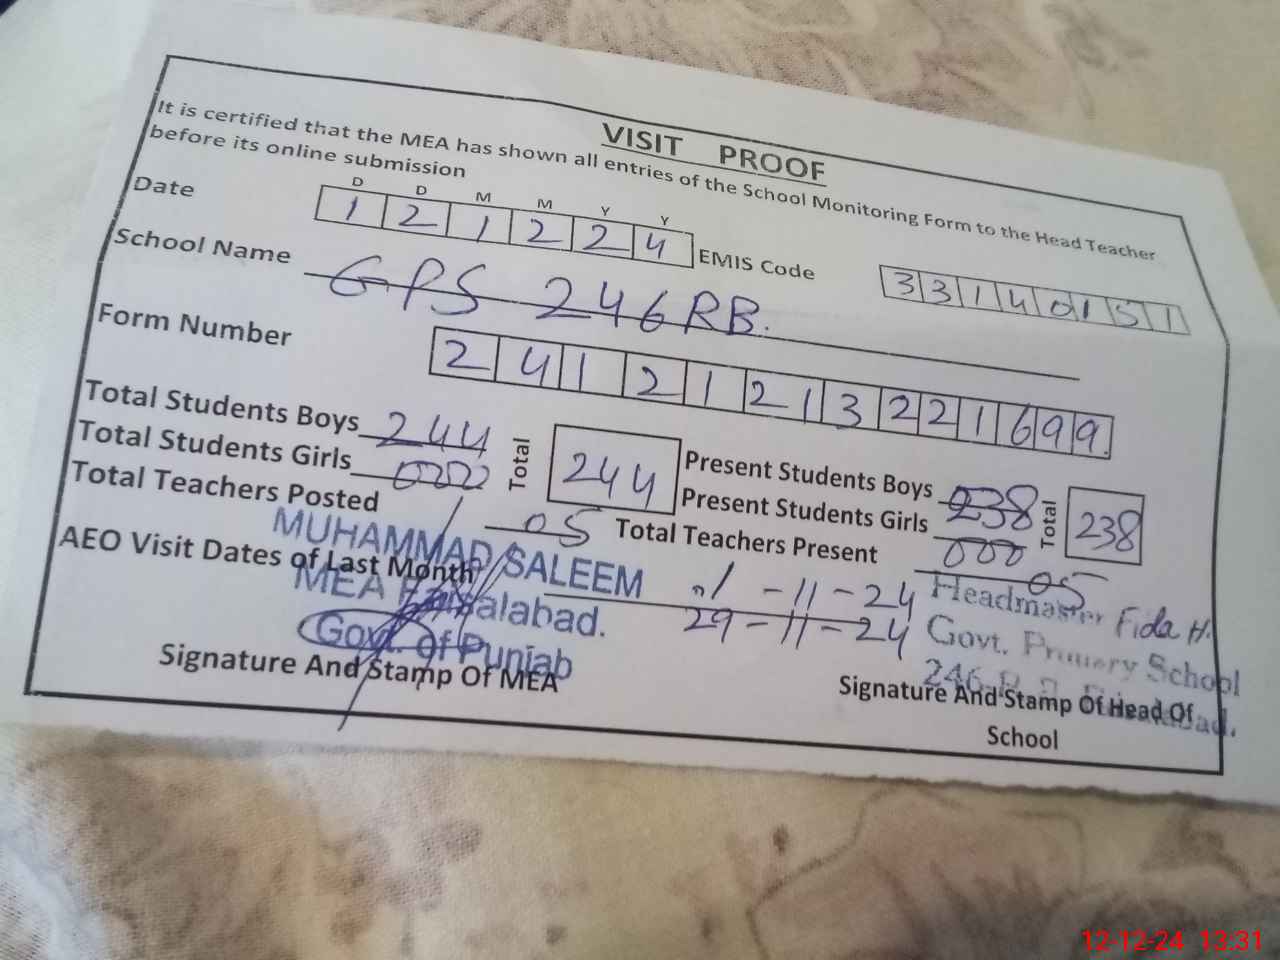 VISIT PROOF
It is certified that the MEA has shown all entries of the School Monitoring Form to the Head Teacher
before its online submission
D D M M Y Y
Date 1 2 1 2 2 4 EMIS Code 3 3 1 4 0 1 5 1
School Name GPS 246 RB.
Form Number 2 4 1 2 1 2 1 3 2 2 1 6 9 9
Total Students Boys 244 Total 244 Present Students Boys 238 Total 238
Total Students Girls 000 Present Students Girls 000
Total Teachers Posted 05 Total Teachers Present 05
AEO Visit Dates of Last Month -11-24
29-11-24
MUHAMMAD SALEEM
MEA Faisalabad.
Govt. of Punjab
Signature And Stamp Of MEA
Headmaster Fida H.
Govt. Primary School
246
Signature And Stamp Of Head Of
School
12-12-24 13:31